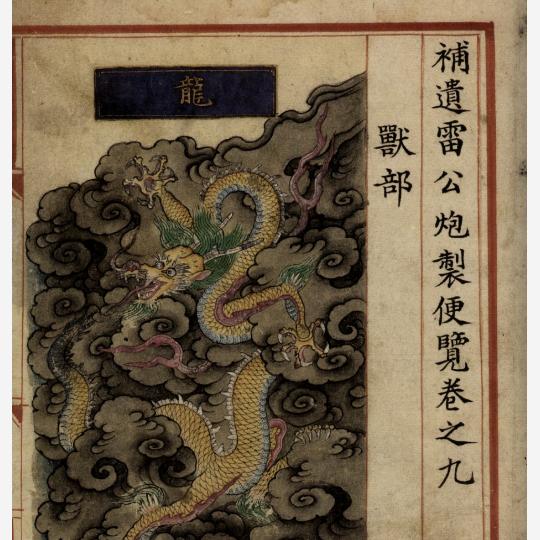 補遺雷公炮製便覽卷之九
獸部
龍